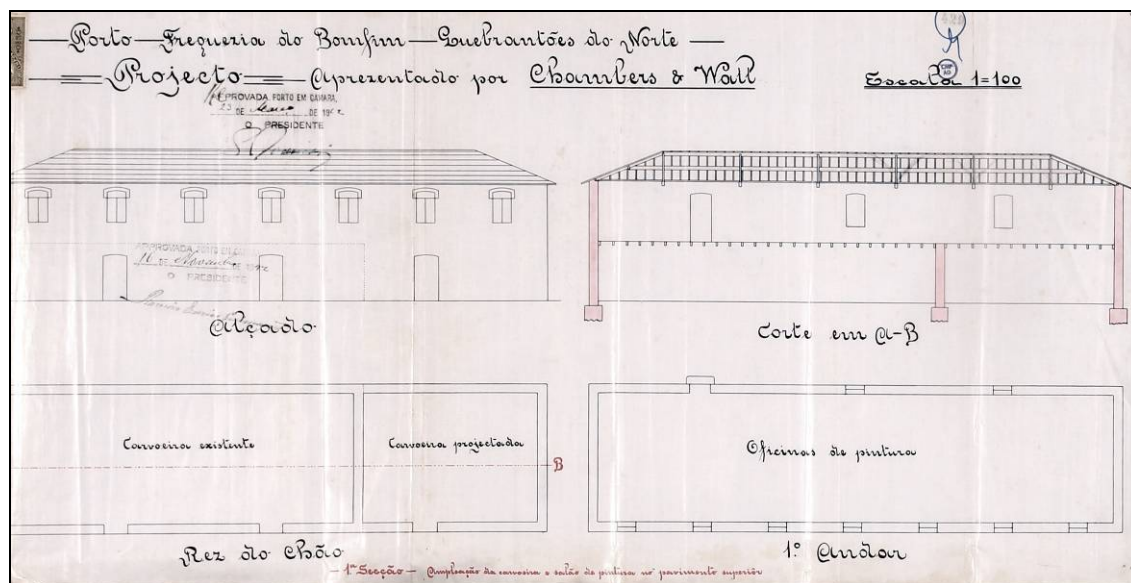 Porto — Freguezia do Bomfim — Quebrantões do Norte —
Projecto — Aprezentado por Chambers & Wall
Escala 1=100
APROVADA. PORTO EM CAMARA,
23 DE Março DE 19
O PRESIDENTE
APROVADA. PORTO EM CAMARA,
16 DE Novembro DE
O PRESIDENTE
Alçado
Corte em A-B
Carvoeira existente
Carvoeira projectada
B
Oficinas de pintura
Rez do Chão
1º Andar
— 1ª Secção — Ampliação da carvoeira e salão de pintura no pavimento superior